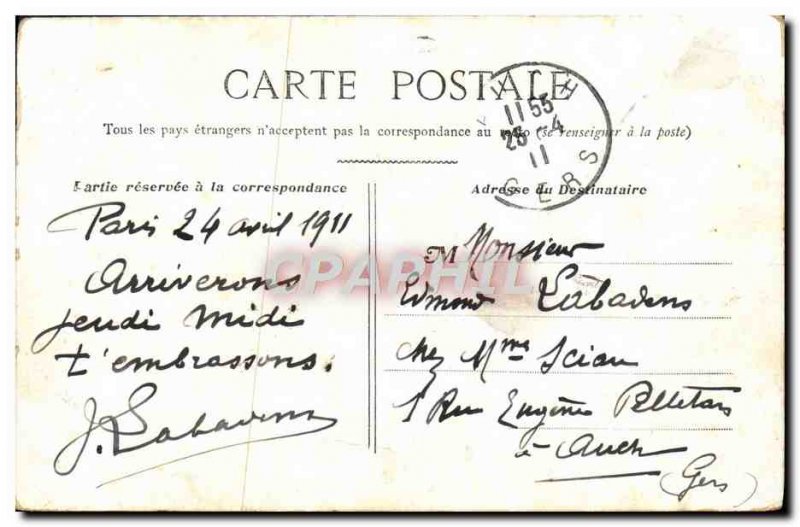 CARTE POSTALE
Tous les pays étrangers n'acceptent pas la correspondance au recto (se renseigner à la poste)
11 55
25 - 4
11
GERS
Partie réservée à la correspondance
Adresse du Destinataire
Paris 24 avril 1911
Arriverons
jeudi midi
t'embrassons.
J. Labadens
M Monsieur
Edmond Labadens
chez Mme Sciau
1 Rue Eugène Pelletan
à Auch
(Gers)
CPAPHIL